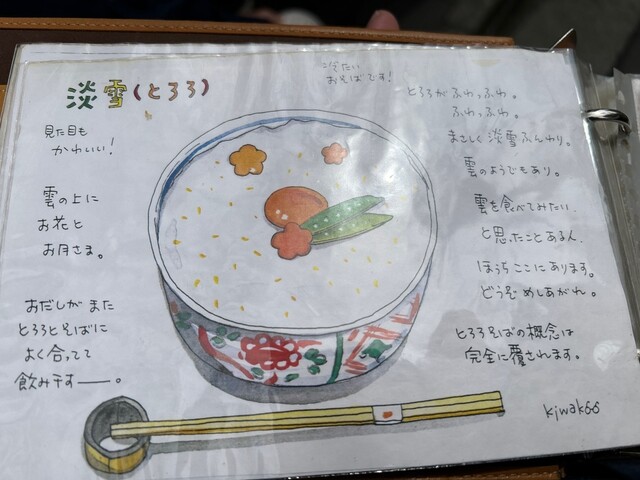 淡雪(とろろ)
冷たい
おそばです!
見た目も
かわいい!
雲の上に
お花と
お月さま。
おだしがまた
とろろとそばに
よく合ってて
飲み干すー。
とろろがふわっふわ。
ふわっふわ。
まさしく淡雪ふんわり。
雲のようでもあり。
雲を食べてみたい、
と思ったことあるん、
ほうらここにあります。
どうぞめしあがれ。
とろろそばの概念は
完全に覆されます。
kiwakoo